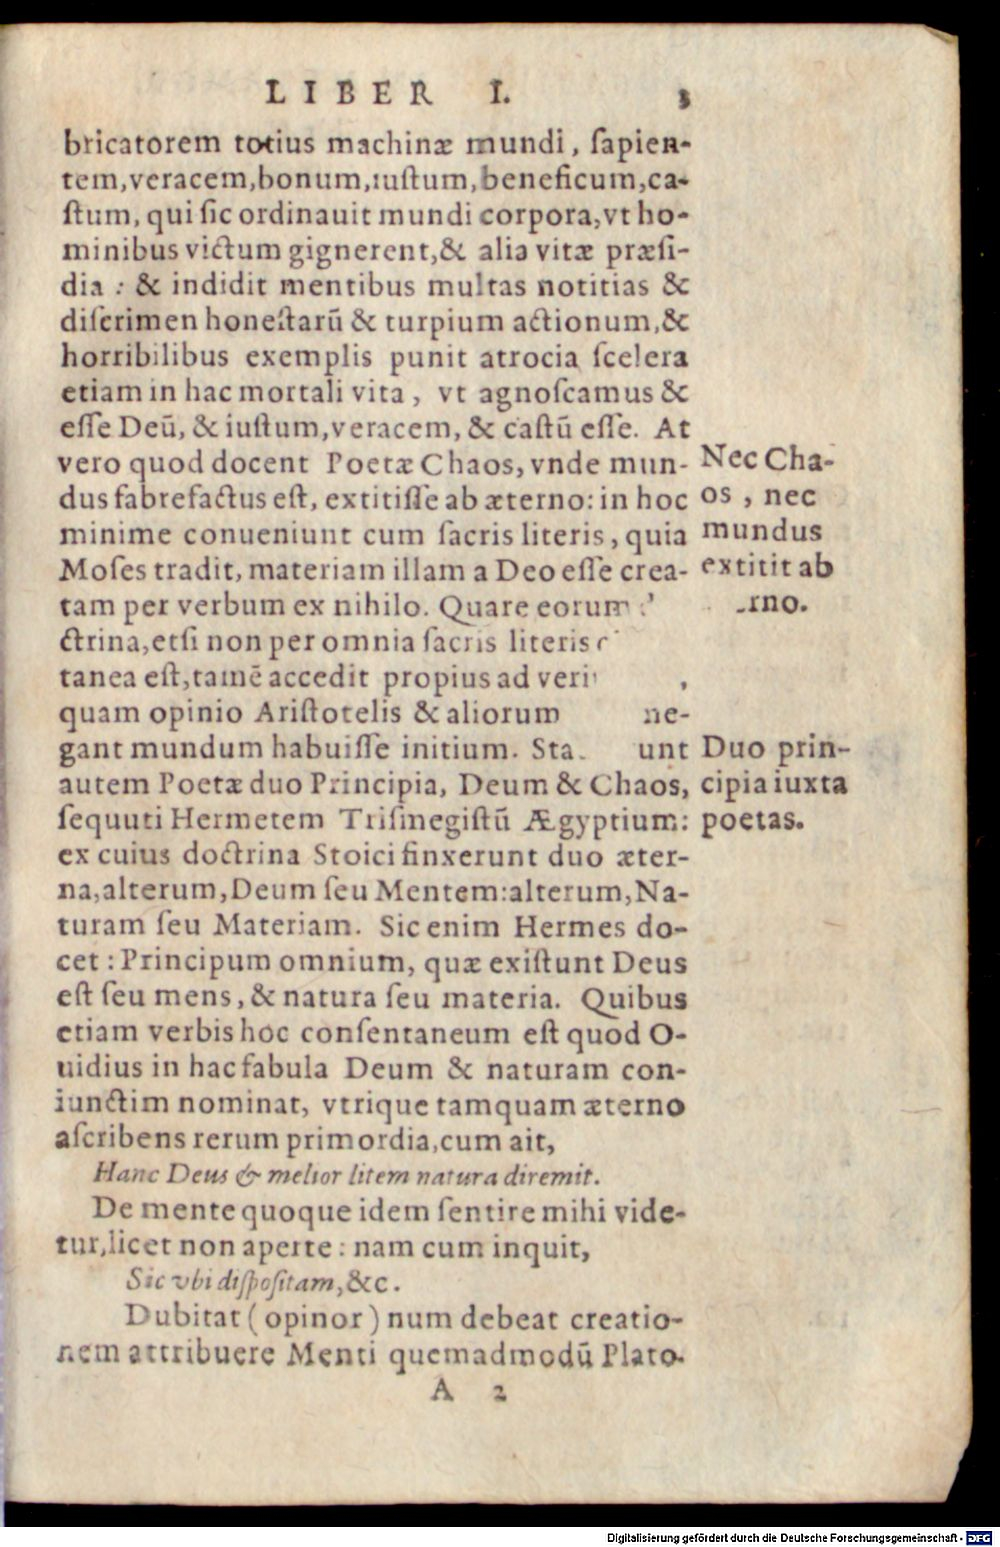 LIBER I. 3
bricatorem totius machinæ mundi, ſapien-
tem,veracem,bonum,iuſtum,beneficum,ca-
ſtum, qui ſic ordinauit mundi corpora,vt ho-
minibus victum gignerent,& alia vitæ præſi-
dia : & indidit mentibus multas notitias &
diſcrimen honeſtarū & turpium actionum,&
horribilibus exemplis punit atrocia ſcelera
etiam in hac mortali vita, vt agnoſcamus &
eſſe Deū, & iuſtum,veracem, & caſtū eſſe. At
vero quod docent Poetæ Chaos, vnde mun-
dus fabrefactus eſt, extitiſſe ab æterno: in hoc
minime conueniunt cum ſacris literis, quia
Moſes tradit, materiam illam a Deo eſſe crea-
tam per verbum ex nihilo. Quare eorum
ctrina,etſi non per omnia ſacris literis
tanea eſt,tamē accedit propius ad
quam opinio Ariſtotelis & aliorum ne-
gant mundum habuiſſe initium. Sta unt
autem Poetæ duo Principia, Deum & Chaos,
ſequuti Hermetem Triſmegiſtū Ægyptium:
ex cuius doctrina Stoici finxerunt duo æter-
na,alterum,Deum ſeu Mentem:alterum,Na-
turam ſeu Materiam. Sic enim Hermes do-
cet : Principum omnium, quæ exiſtunt Deus
eſt ſeu mens, & natura ſeu materia. Quibus
etiam verbis hoc conſentaneum eſt quod O-
uidius in hac fabula Deum & naturam con-
iunctim nominat, vtrique tamquam æterno
aſcribens rerum primordia,cum ait,
Hanc Deus & melior litem natura diremit.
De mente quoque idem ſentire mihi vide-
tur,licet non aperte : nam cum inquit,
Sic vbi diſpoſitam,&c.
Dubitat ( opinor ) num debeat creatio-
nem attribuere Menti quemadmodū Plato.
A 2
Nec Cha-
os , nec
mundus
extitit ab
rno.
Duo prin-
cipia iuxta
poetas.
Digitalisierung gefördert durch die Deutsche Forschungsgemeinschaft - DFG